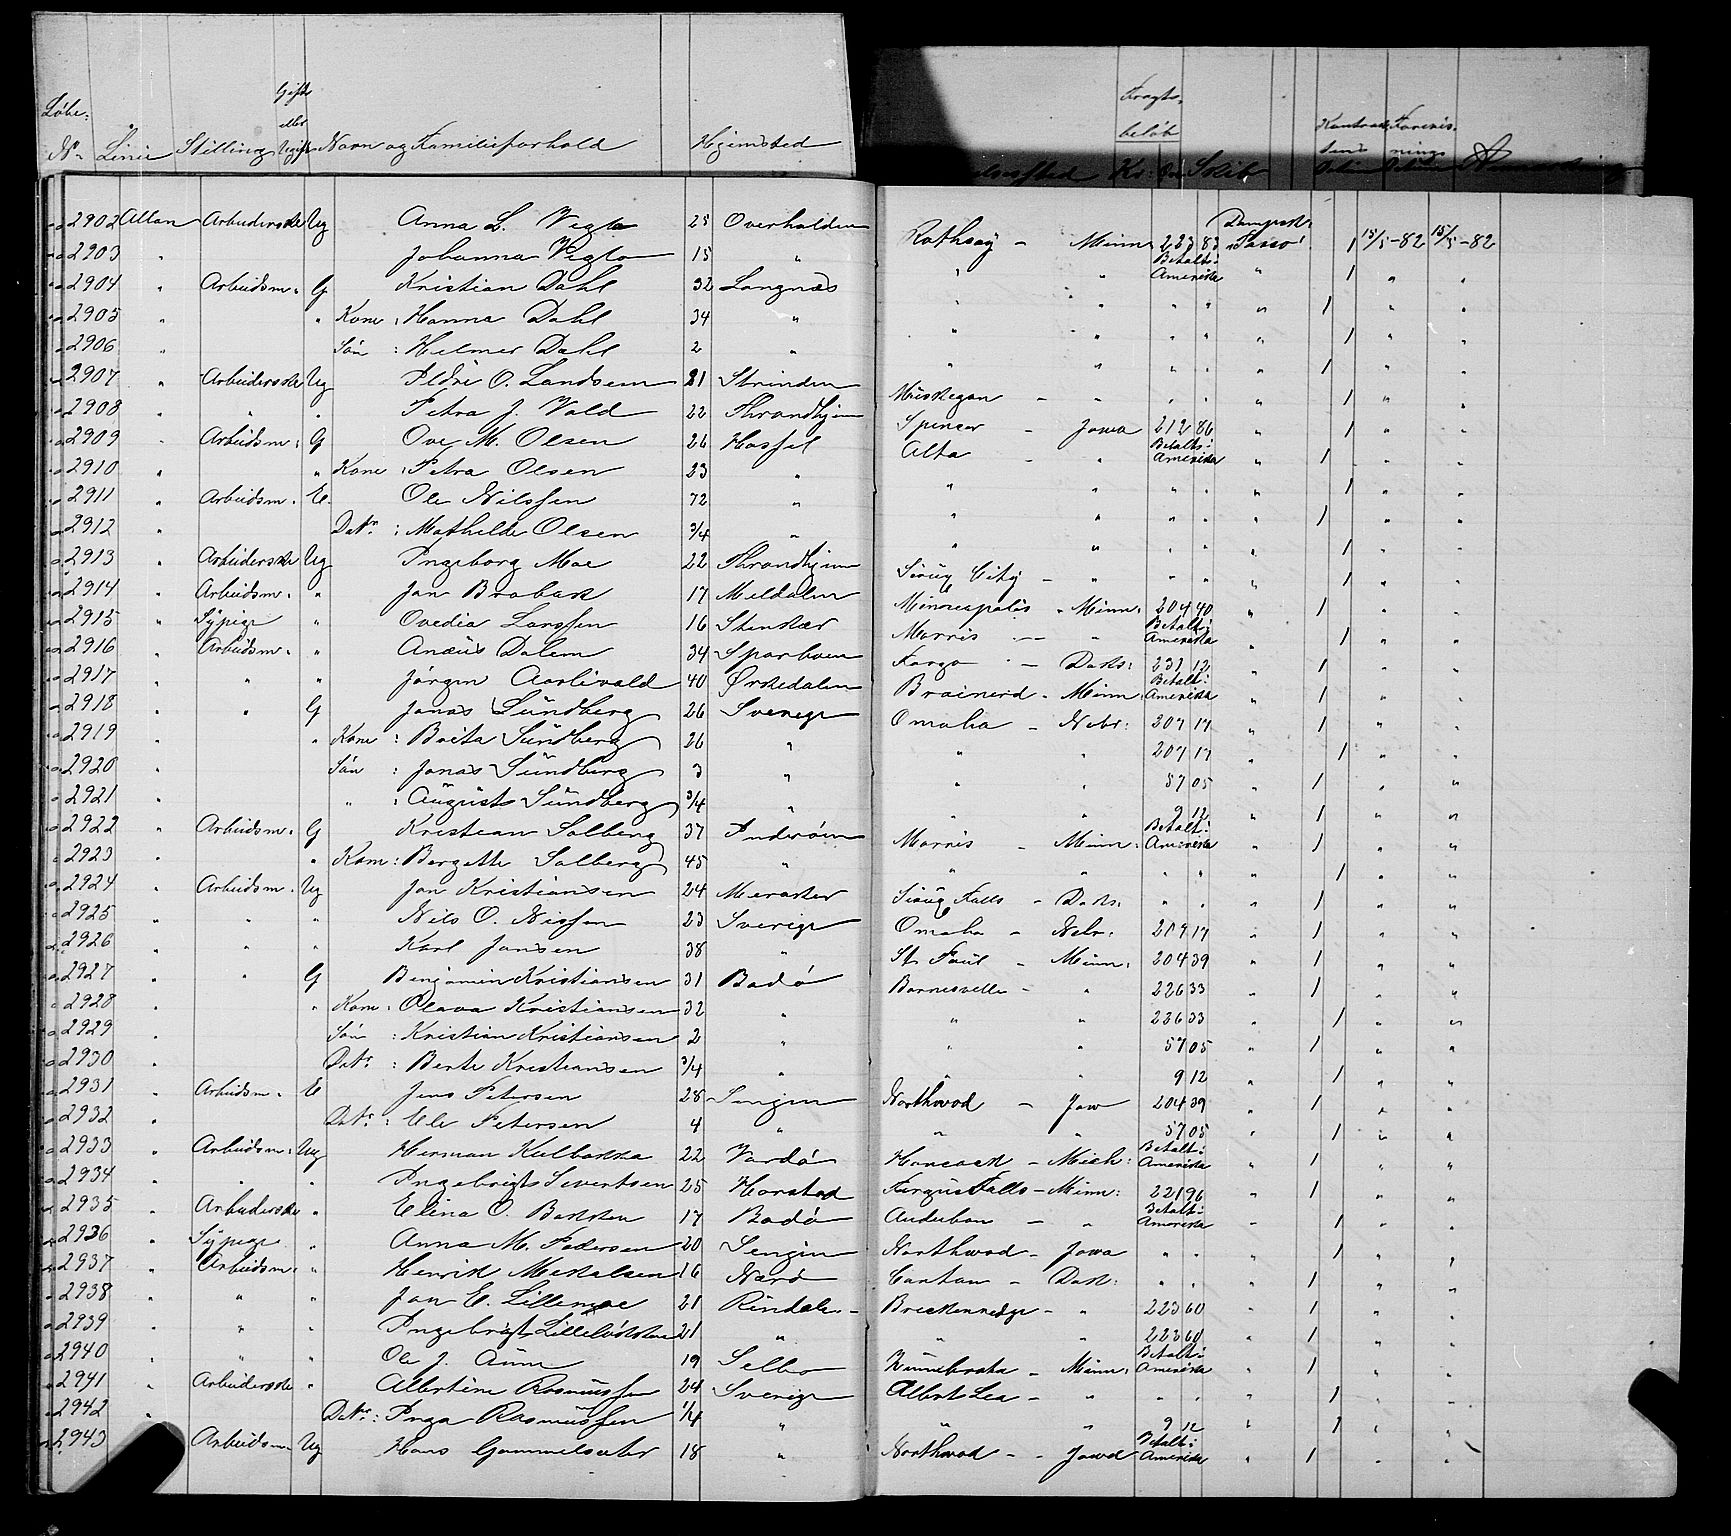 Løbe- Nr. Linie Stilling Gift eller Ugift Navn og Familieforhold Hjemsted Fragtbeløb Kr: Skib
2902 Allan Arbeiderske Ug Anna L. Vegto 25 Overhalden Rothsay - Minn 223 83 Dampsk: Tasso 1 15/5-82 15/5-82
2903 " Johanna Vegto 15 " " " Betalt i Amerika " 1 " "
2904 " Arbeidsm. G Kristian Dahl 32 Langnæs " " " " " 1 " "
2905 " " Kone: Hanna Dahl 34 " " " " " " 1 " "
2906 " Søn: Helmer Dahl 2 " " " " " " 1 " "
2907 " Arbeiderske Ug O. Landsem 21 Strinden Muskegan - " " " " 1 " "
2908 " " " Petra J. Vold 22 Throndhjem Spencer - Jowa 212 86 " 1 " "
2909 " Arbeidsm: G Ove M. Olsen 26 Alta - " Betalt i Amerika " 1 " "
2910 " " Kone: Petra Olsen 23 " " " " " " 1 " "
2911 " Arbeidsm. E. Ole Nilssen 72 " " " " " " 1 " "
2912 " Datr: Mathilde Olsen 3/4 " " " " " " 1 " "
2913 " Arbeiderske Ug Ingeborg Moe 22 Throndhjem Sioux City - " " " " 1 " "
2914 " Arbeidsm. " Jon Brabak 17 Meldalen Minneapolis " Minn: 204 40 " 1 " "
2915 " Sypige " Ovedia Larssen 16 Stenkær Morris - " Betalt i Amerika " 1 " "
2916 " Arbeidsm. " Anæus Dalem 34 Sparboen Fargo - Dak: 231 12 " 1 " "
2917 " " " Jørgen Aarlivold 40 Ørkedalen Brainerd - Minn Betalt i Amerika " 1 " "
2918 " " G Jonas Sundberg 26 Sverige Omaha - Nebr: 207 17 " 1 " "
2919 " " Kone: Brita Sundberg 26 " " " 207 17 " 1 " "
2920 " Søn: Jonas Sundberg 3 " " " 57 05 " 1 " "
2921 " " : August Sundberg 3/4 " " " 9 12 " 1 " "
2922 " Arbeidsm. G Kristian Solberg 37 Inderøen Morris - Minn: Betalt i Amerika " 1 " "
2923 " " Kone: Bergette Solberg 45 " " " " " " 1 " "
2924 " Arbeidsm. Ug Jon Kristiansen 24 Meraker Sioux Falls - Dak: " " " 1 " "
2925 " " " Nils O. Nissen 23 Sverige Omaha - Nebr. 219 17 " 1 " "
2926 " " " Karl Jansen 38 " St Paul - Minn: 204 39 " 1 " "
2927 " " G Benjamin Kristiansen 31 Bodø Barnesville - " 226 33 " 1 " "
2928 " " Kone: Olava Kristiansen 32 " " " 226 33 " 1 " "
2929 " Søn: Kristian Kristiansen 2 " " " 57 05 " 1 " "
2930 " Datr: Berte Kristiansen 3/4 " " " 9 12 " 1 " "
2931 " Arbeidsm. E Jens Petersen 28 Sengen Northwood - Jow 204 39 " 1 " "
2932 " Datr: Ele Petersen 4 " " " 57 05 " 1 " "
2933 " Arbeidsm: Ug Herman Kulbakka 22 Vardø Hancock - Mich: Betalt i Amerika " 1 " "
2934 " " " Ingebrigt Sivertsen 25 Harstad Fergus Falls - Minn: 221 96 " 1 " "
2935 " Arbeiderske " Elina O. Bakken 17 Bodø Auduban - " Betalt i Amerika " 1 " "
2936 " Sypige " Anna M. Pedersen 20 Sengen Northwood - Jowa " " " 1 " "
2937 " Arbeidsm: " Henrik Mikalsen 16 Nærø Canton - Dak: " " " 1 " "
2938 " " " Jon E. Lillemoe 21 Rindalen - Breckenredge - " 223 60 " 1 " "
2939 " " " Ingebrigt 21 " " " 223 60 " 1 " "
2940 " " " Ole J. Aune 19 Selbo - Minn: Betalt i Amerika " 1 " "
2941 " Arbeiderske " Albertine Rasmussen 24 Sverige Albert Lea - " " " " 1 " "
2942 " Datr: Inga Rasmussen 1/4 " " " 9 12 " 1 " "
2943 Arbeidsm. Ug Hans Gammelsæter 18 " Northwood - Jowa Betalt i Amerika " 1 " "